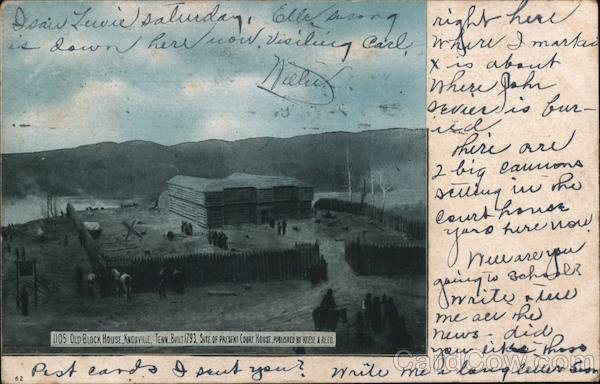 I saw Lewie Saturday, Ella Swong
is down here now. Visiting Carl.
Willie
right here
Where I marked
X is about
Where John
Sevier is bur-
ied
There are
2 big cannons
setting in the
Court house
yard here now.
Will are you
going to School?
Write & tell
me all the
news - did
you like those
Post cards I sent you? Write me a long letter soon
1105 OLD BLOCK HOUSE, KNOXVILLE, TENN. BUILT 1793. SITE OF PRESENT COURT HOUSE. PUBLISHED BY REESE & REED.
62
CardCow.com